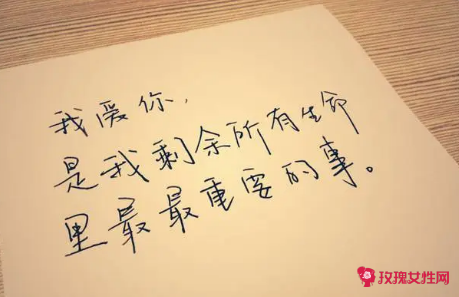 我爱你，
是我剩余所有生命
里最最重要的事。
玫瑰女性网